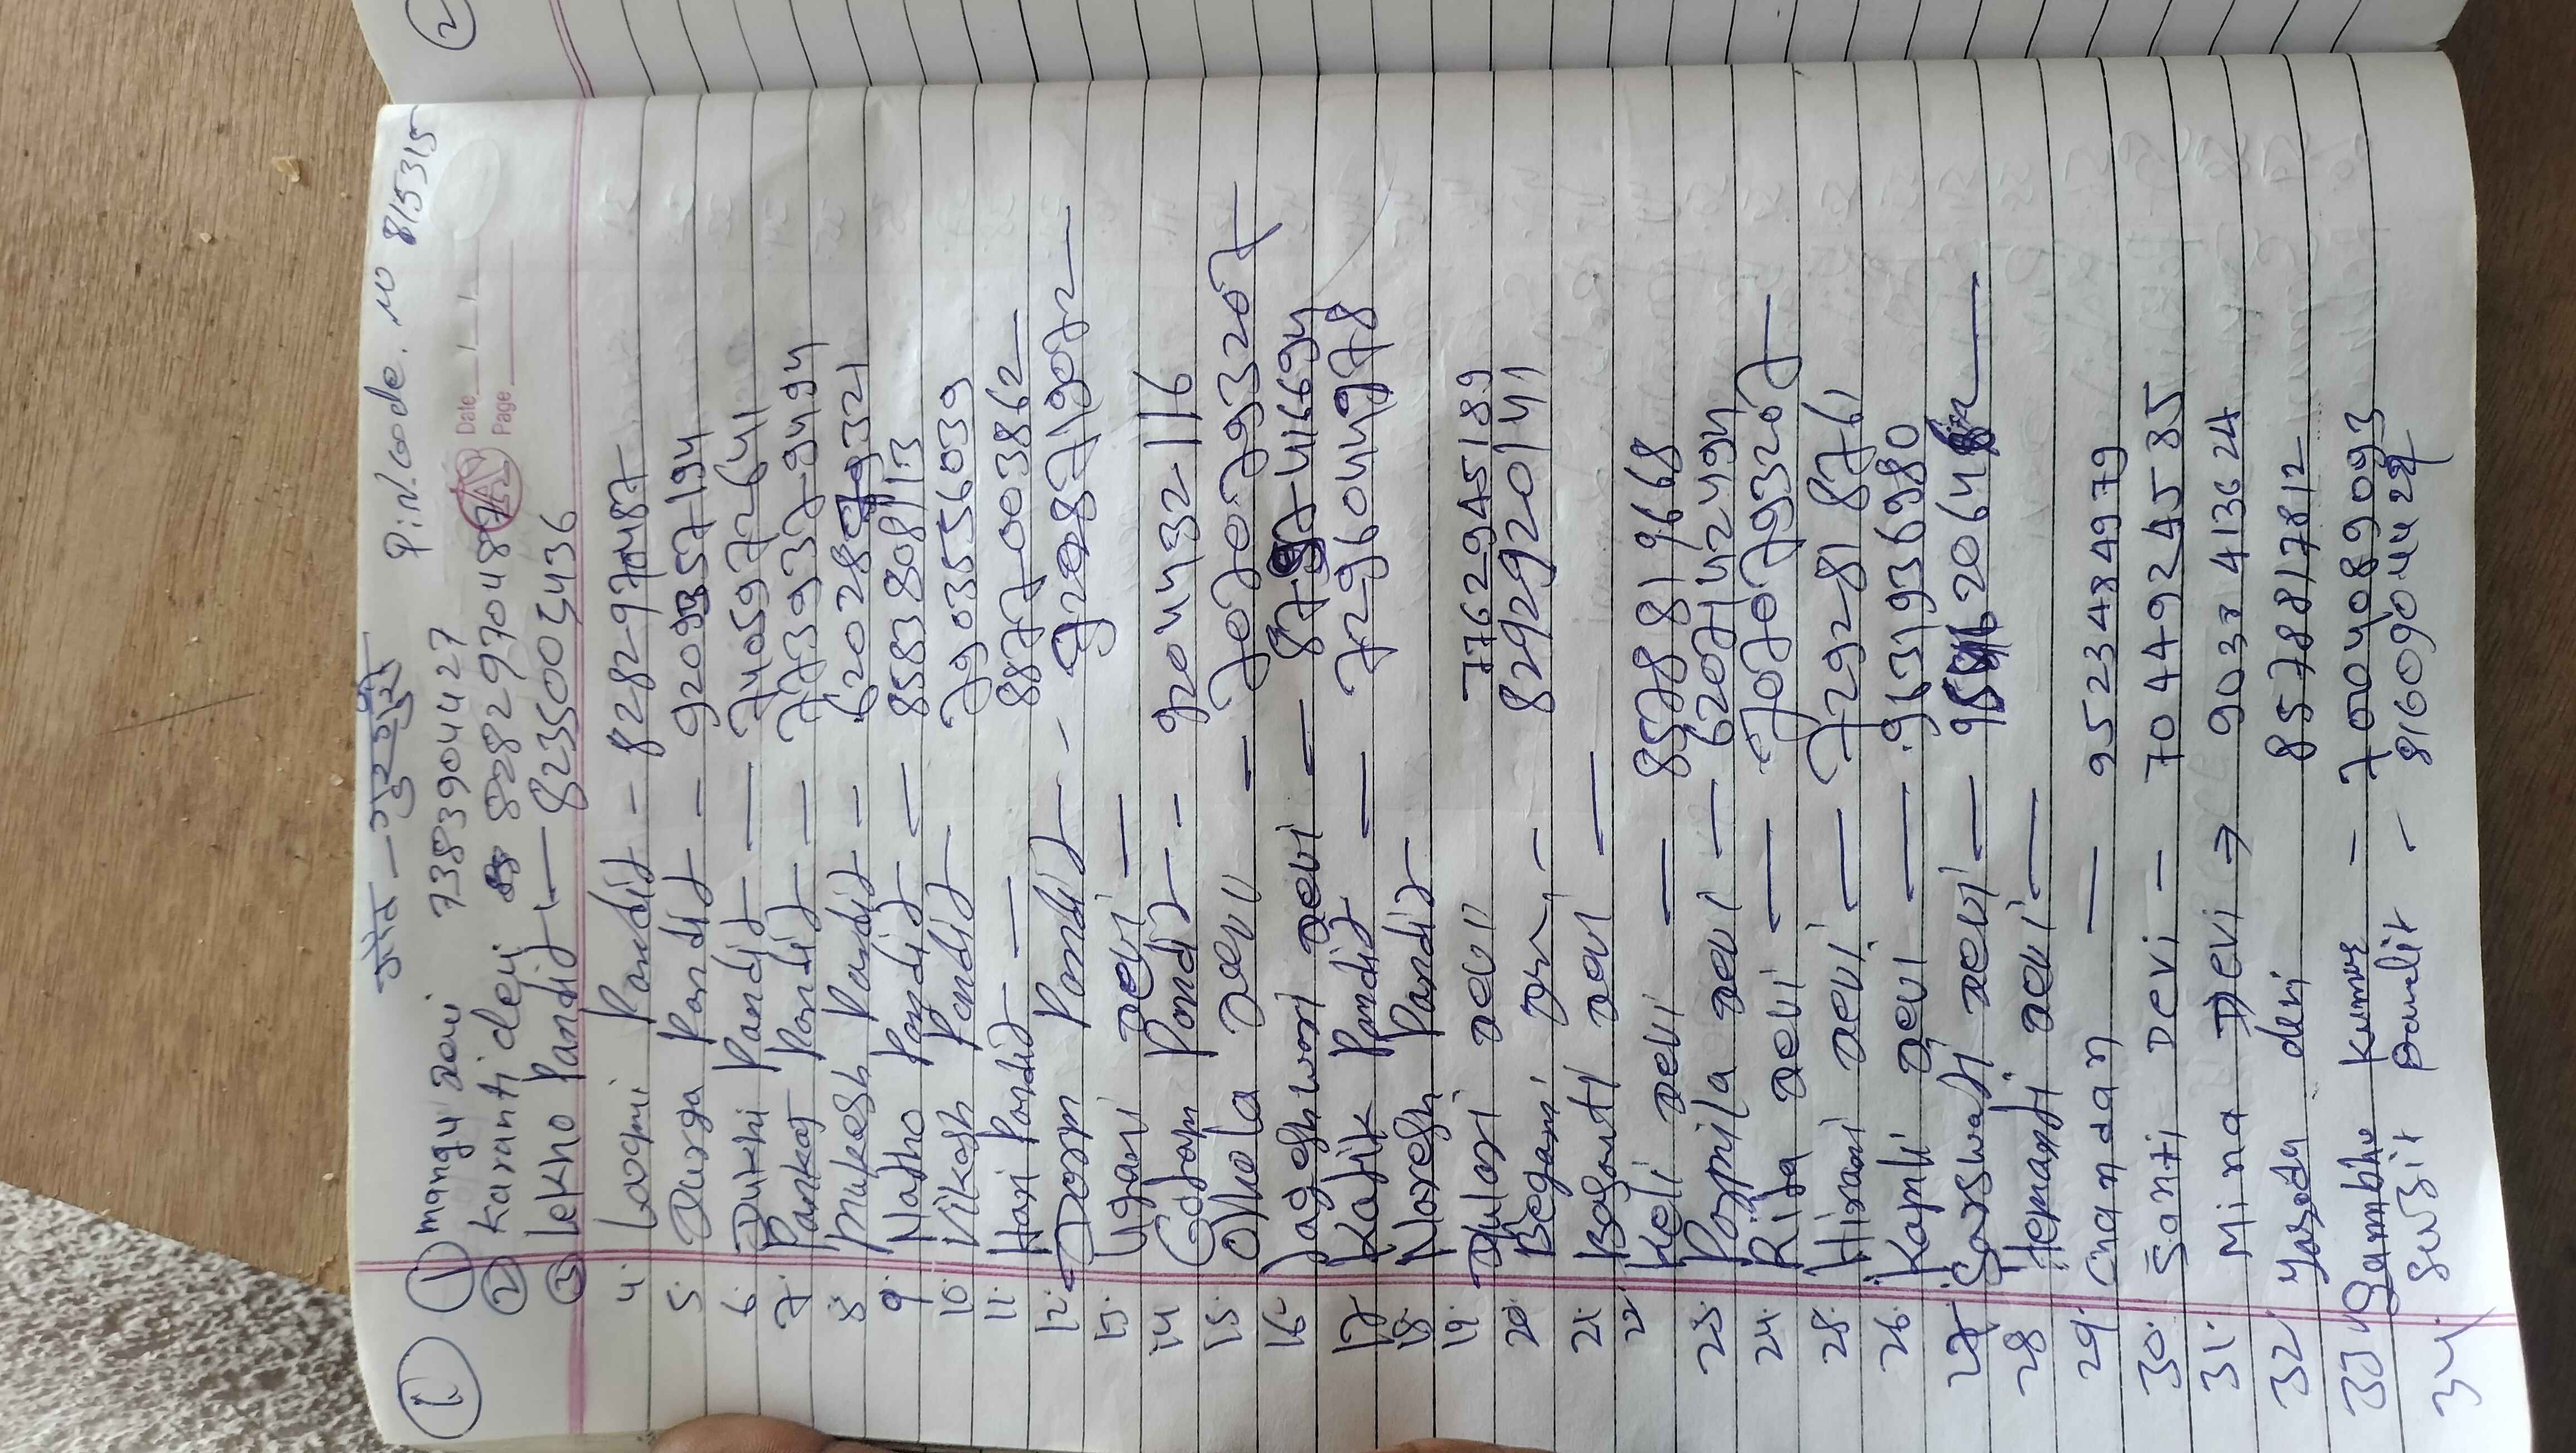 गाँव – गुरुगुड़ो
Pin.code. no 815315
1.
Date
Page
① mangu Devi 7383904427
② Karanti devi 8282970487
③ Lekho Pandit — 8235005436
4. Laxmi Pandit – 8282970487
5. Durga Pandit – 9209357194
6. Dukhi Pandit — 7405972641
7. Pankaj Pandit – 7739379494
8. Mukesh Pandit – 6202879321
9. Natho Pandit — 8583808113
10. Vikash Pandit 7903556039
11. Hari Pandit — 8877003862 —
12. Doram Pandit - 9208719072 —
13. Ugani Devi —
14 Gotam Pandit - - 9204432116
15. Okela Devi — 7070793207
16. Jageshwori Devi — 8797416694
17 Kartik Pandit — 7296044978
18. Naresh Pandit
19. Dulari Devi 7762945189
20. Begani Devi — 8292920141
21. Basanti Devi —
22. Keli Devi — 8578819668
23. Pormila Devi — 6207142494
24. Rita Devi — 7070793207 —
28. Hirani Devi — 7292818761
26. Kapili Devi — 9631936980
27. Sarswati Devi — 20648 —
28 Hemanti Devi —
29. Chandan — 9523484979
30. Santi Devi – 7044924585
31. Mina Devi → 9038413624
32. Yasoda devi 8578817812
33 Sambhu Kumar – 7004089093
34. Surjit Pandit – 8160904429